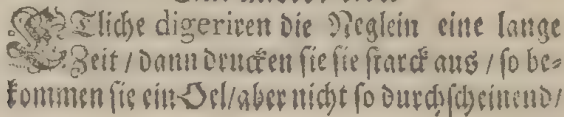 Etliche digeriren die Neglein eine lange
Zeit / dann drucken sie sie starck aus / so be-
kommen sie ein Oel/aber nicht so durchscheinend/